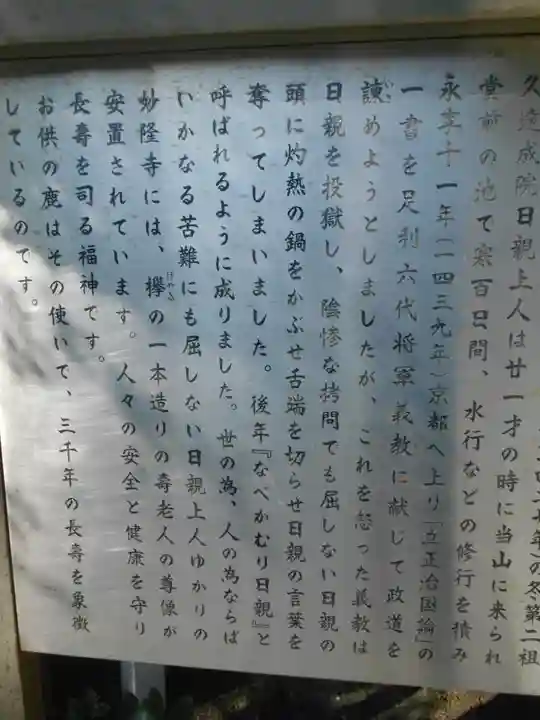 年)の冬第二祖
久遠成院日親上人は廿一才の時に当山に来られ
堂前の池で寒百日間、水行などの修行を積み
永享十一年(一四三九年)京都へ上り「立正治国論」の
一書を足利六代将軍義教に献じて政道を
諌めようとしましたが、これを怒った義教は
日親を投獄し、陰惨な拷問でも屈しない日親の
頭に灼熱の鍋をかぶせ舌端を切らせ日親の言葉を
奪ってしまいました。後年『なべかむり日親』と
呼ばれるように成りました。世の為、人の為ならば
いかなる苦難にも屈しない日親上人ゆかりの
妙隆寺には、欅の一本造りの寿老人の尊像が
安置されています。人々の安全と健康を守り
長壽を司る福神です。
お供の鹿はその使いで、三千年の長壽を象徴
しているのです。